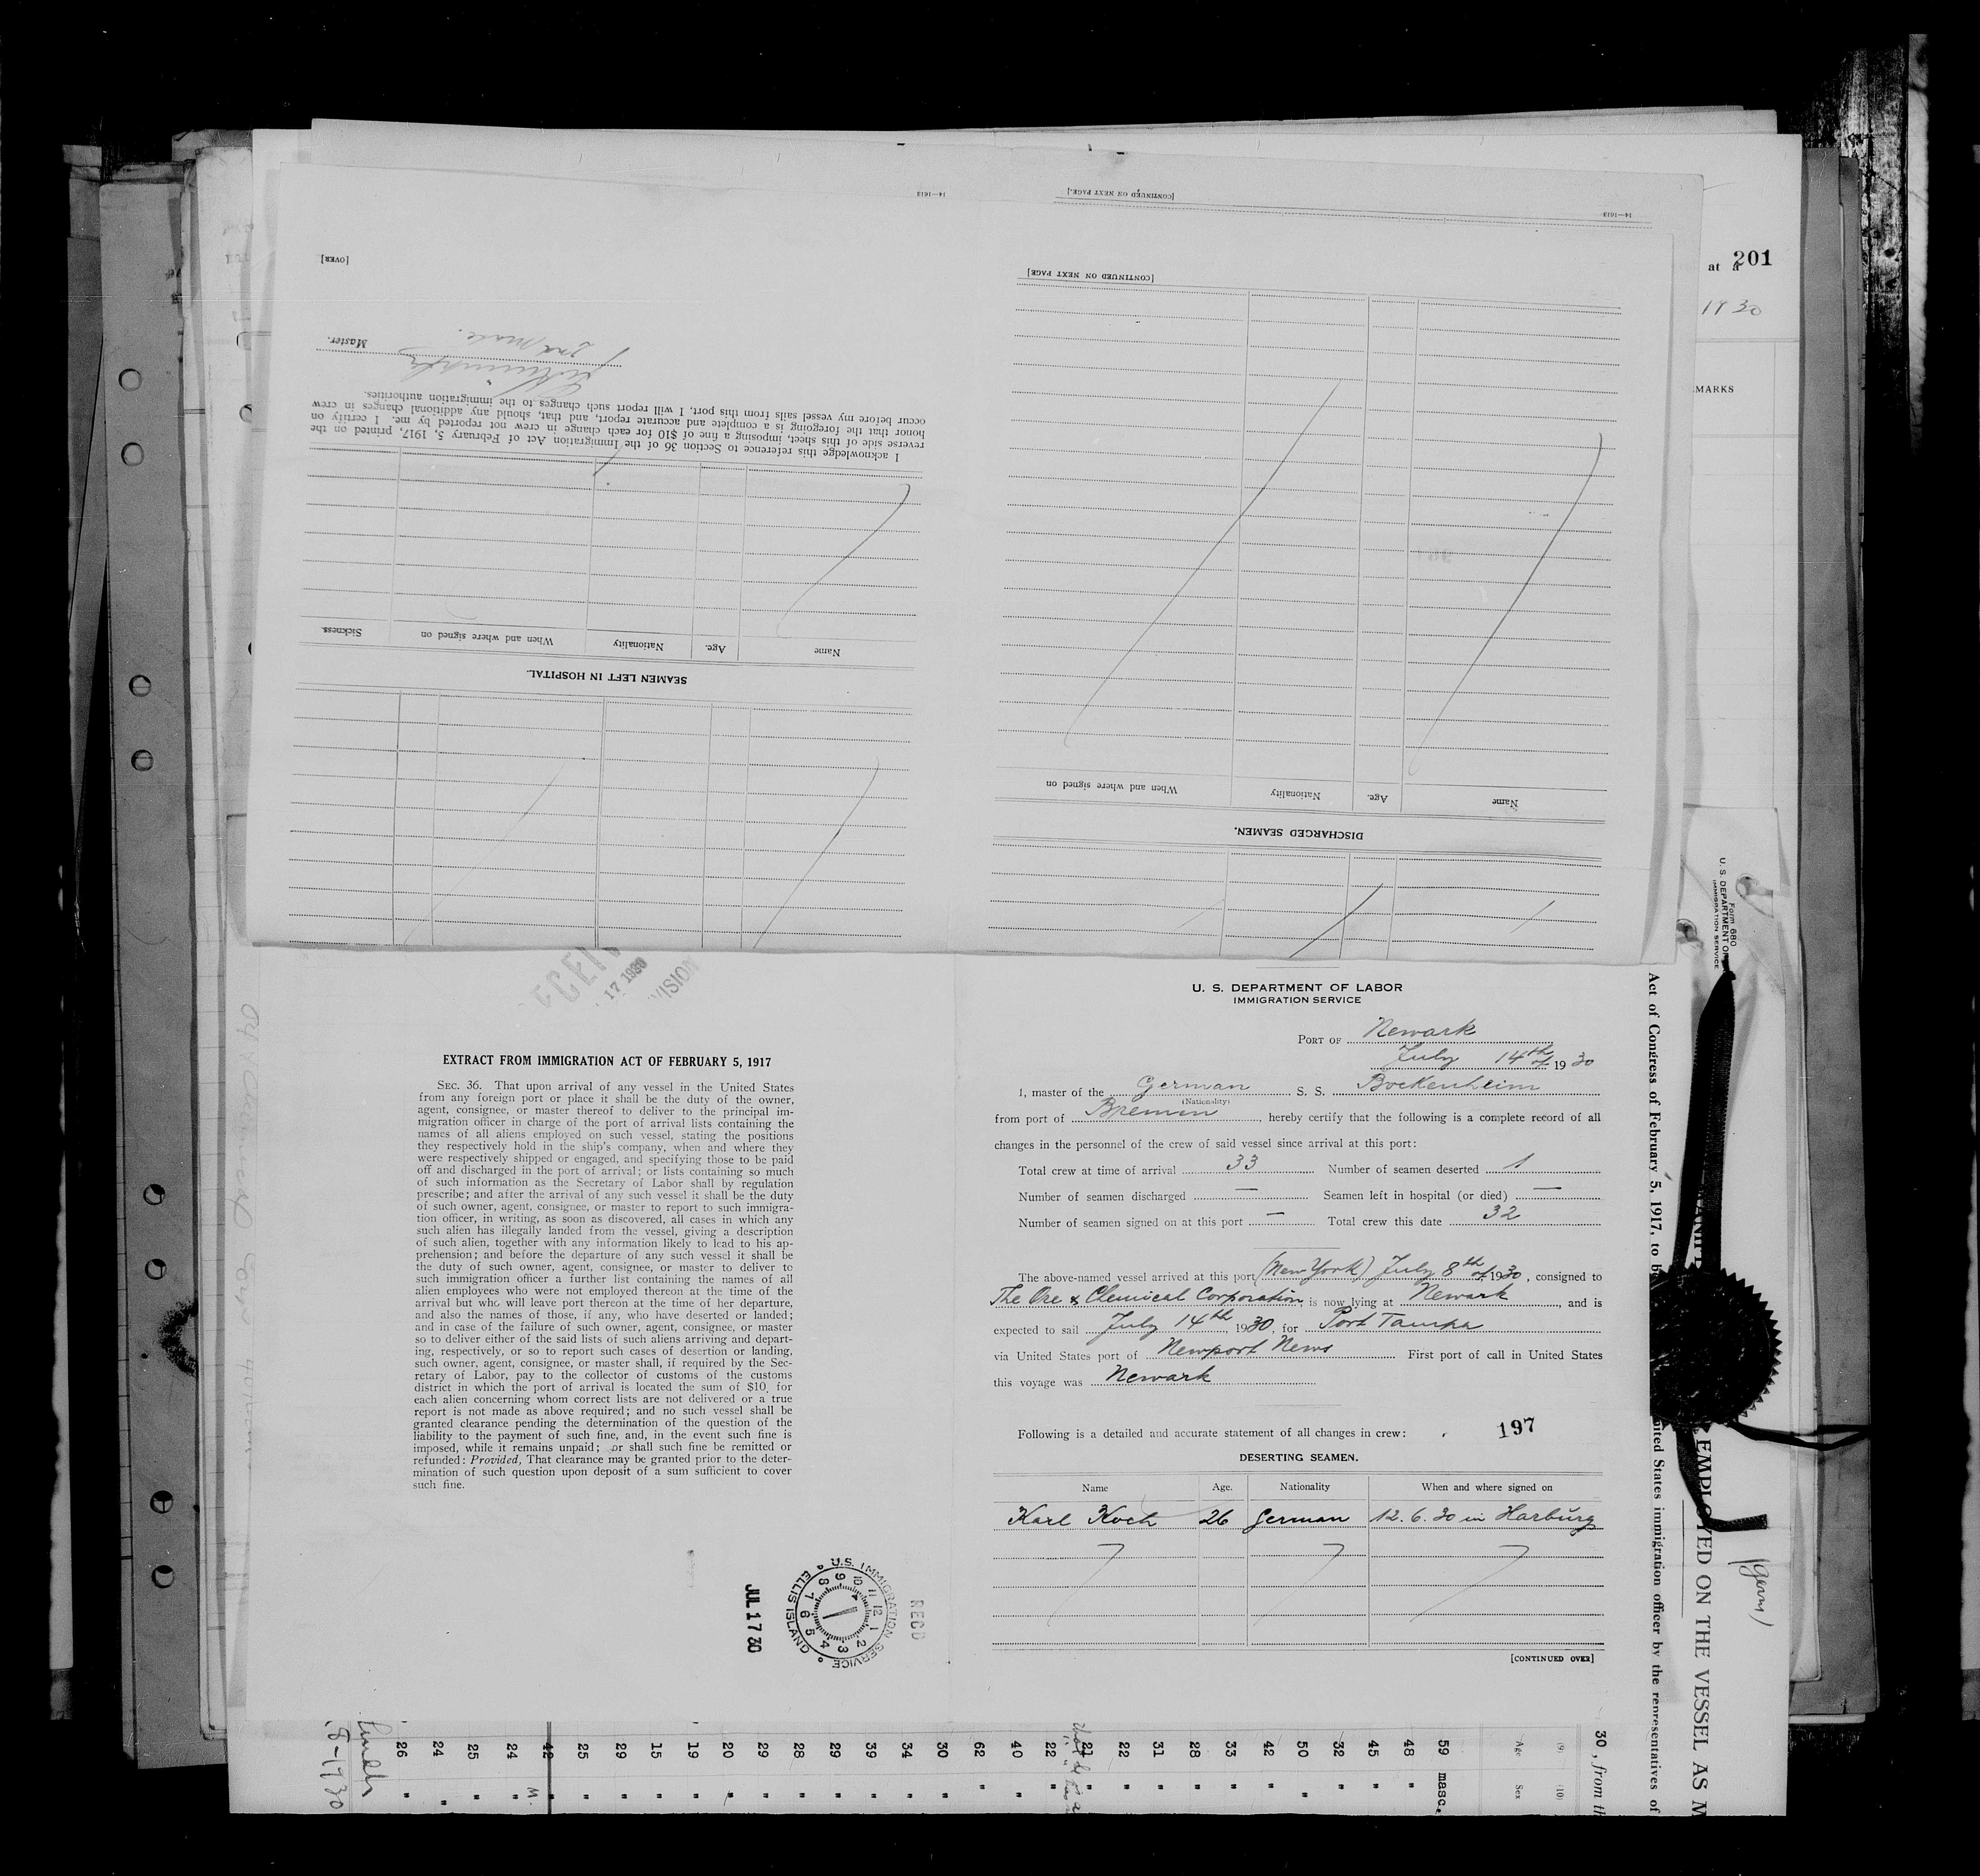 14—1613
[CONTINUED ON NEXT PAGE.]
14—1613
[OVER]
[CONTINUED ON NEXT PAGE]
at a
201
1930
MARKS
2nd Mate.
Master.
I acknowledge this reference to Section 36 of the Immigration Act of February 5, 1917, printed on the
reverse side of this sheet, imposing a fine of $10 for each change in crew not reported by me. I certify on
honor that the foregoing is a complete and accurate report, and that, should any additional changes in crew
occur before my vessel sails from this port, I will report such changes to the immigration authorities.
Name Age. Nationality When and where signed on Sickness
SEAMEN LEFT IN HOSPITAL.
Name Age. Nationality When and where signed on
DISCHARGED SEAMEN.
Form 680
U. S. DEPARTMENT OF
IMMIGRATION SERVICE
17 1930
VISION
EXTRACT FROM IMMIGRATION ACT OF FEBRUARY 5, 1917
SEC. 36. That upon arrival of any vessel in the United States
from any foreign port or place it shall be the duty of the owner,
agent, consignee, or master thereof to deliver to the principal im-
migration officer in charge of the port of arrival lists containing the
names of all aliens employed on such vessel, stating the positions
they respectively hold in the ship's company, when and where they
were respectively shipped or engaged, and specifying those to be paid
off and discharged in the port of arrival; or lists containing so much
of such information as the Secretary of Labor shall by regulation
prescribe; and after the arrival of any such vessel it shall be the duty
of such owner, agent, consignee, or master to report to such immigra-
tion officer, in writing, as soon as discovered, all cases in which any
such alien has illegally landed from the vessel, giving a description
of such alien, together with any information likely to lead to his ap-
prehension; and before the departure of any such vessel it shall be
the duty of such owner, agent, consignee, or master to deliver to
such immigration officer a further list containing the names of all
alien employees who were not employed thereon at the time of the
arrival but who will leave port thereon at the time of her departure,
and also the names of those, if any, who have deserted or landed;
and in case of the failure of such owner, agent, consignee, or master
so to deliver either of the said lists of such aliens arriving and depart-
ing, respectively, or so to report such cases of desertion or landing,
such owner, agent, consignee, or master shall, if required by the Sec-
retary of Labor, pay to the collector of customs of the customs
district in which the port of arrival is located the sum of $10 for
each alien concerning whom correct lists are not delivered or a true
report is not made as above required; and no such vessel shall be
granted clearance pending the determination of the question of the
liability to the payment of such fine, and, in the event such fine is
imposed, while it remains unpaid; or shall such fine be remitted or
refunded: Provided, That clearance may be granted prior to the deter-
mination of such question upon deposit of a sum sufficient to cover
such fine.
JUL 17 30
U.S. IMMIGRATION SERVICE
ELLIS ISLAND
RECD
U. S. DEPARTMENT OF LABOR
IMMIGRATION SERVICE
PORT OF Newark
July 14th 1930
I, master of the German S. S. Bockenheim
(Nationality)
from port of Bremen, hereby certify that the following is a complete record of all
changes in the personnel of the crew of said vessel since arrival at this port:
Total crew at time of arrival 33 Number of seamen deserted 1
Number of seamen discharged — Seamen left in hospital (or died) —
Number of seamen signed on at this port — Total crew this date 32
The above-named vessel arrived at this port (New York) July 8th 1930, consigned to
The Ore & Chemical Corporation is now lying at Newark, and is
expected to sail July 14th 1930, for Port Tampa
via United States port of Newport News First port of call in United States
this voyage was Newark
Following is a detailed and accurate statement of all changes in crew:
197
DESERTING SEAMEN.
Name Age. Nationality When and where signed on
Karl Koch 26 German 12. 6. 30 in Harburg
[CONTINUED OVER]
Act of Congress of February 5, 1917, to b
ited States immigration officer by the representatives of
EMPLOYED ON THE VESSEL AS M
(germ)
30, from th
(9) (10)
Age Sex
59 masc.
48 "
45 "
32 "
50 "
42 "
33 "
28 "
31 "
22 "
21 "
22 "
40 "
62 "
30
34 "
39 "
29 "
28 "
29 "
20 "
19 "
15 "
29 "
25 "
42
24 M.
25 "
24 "
26 "
8-1930